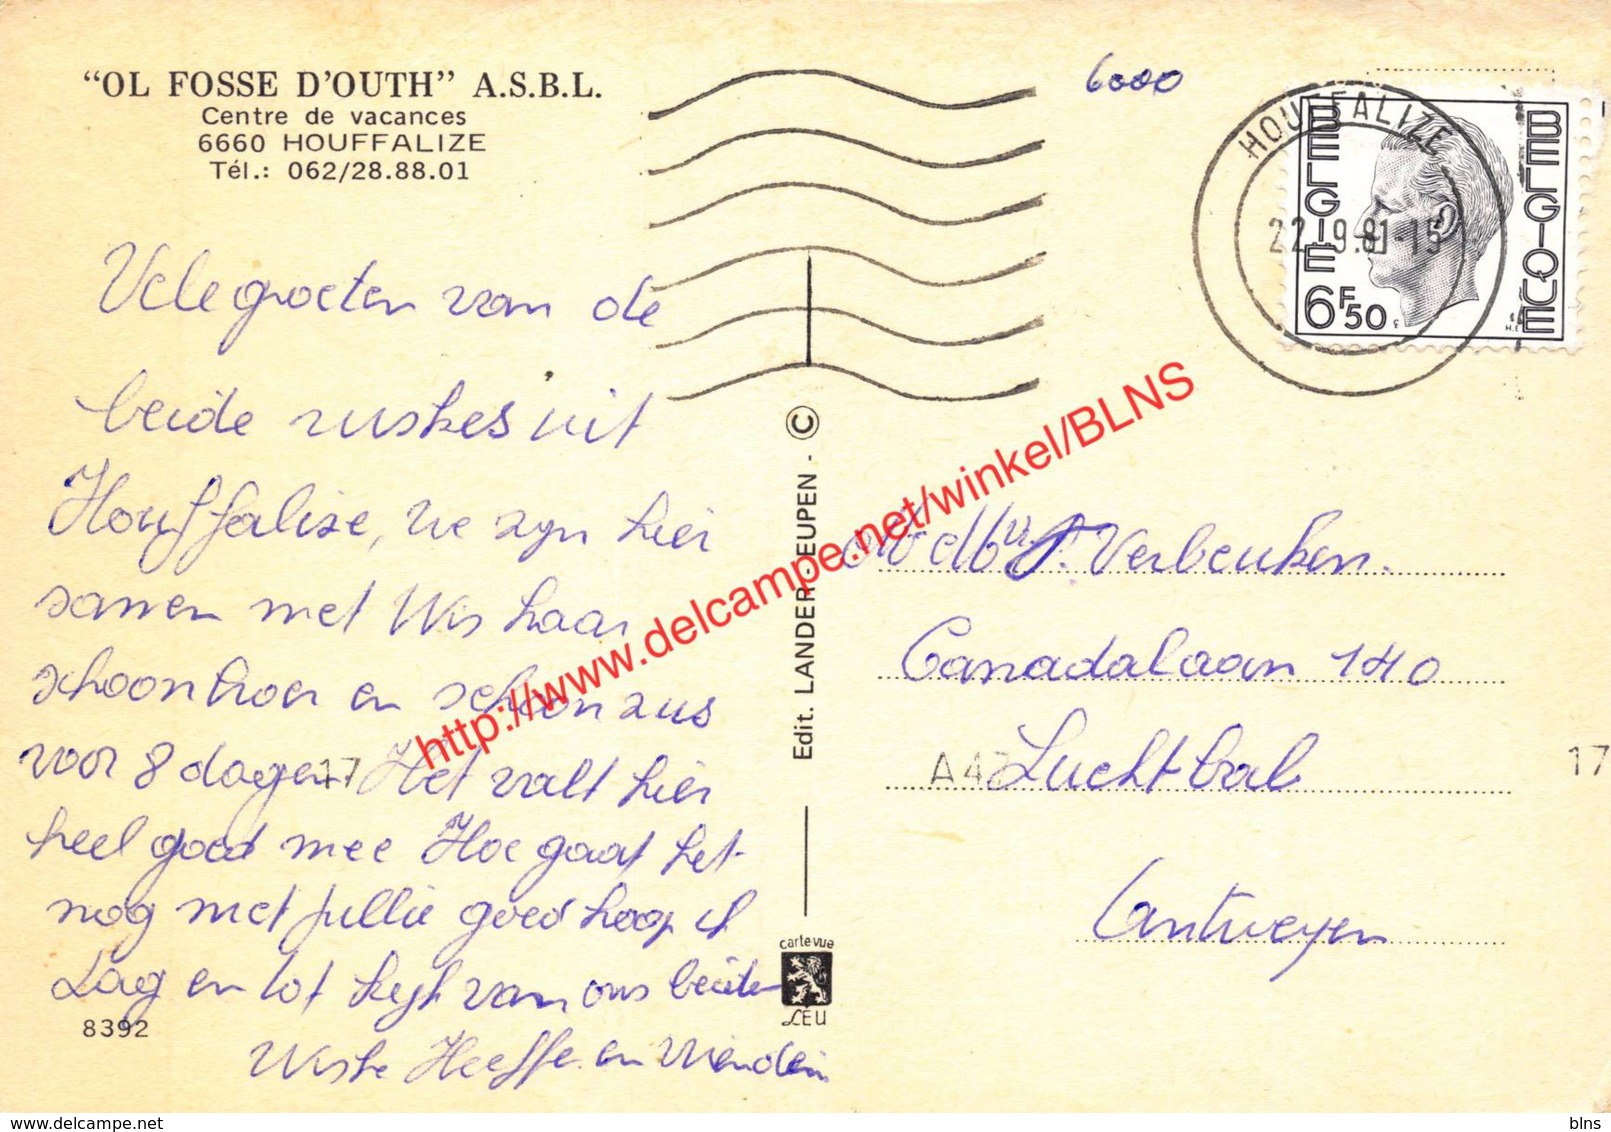 "OL FOSSE D'OUTH" A.S.B.L.
Centre de vacances
6660 HOUFFALIZE
Tél.: 062/28.88.01
Vele groeten van de
beide zuskes uit
Houffalize, we zijn hier
samen met Wis haar
schoonbroer en schoonzus
voor 8 dagen Het valt hier
heel goed mee Hoe gaat het
nog met jullie goed hoop ik
Dag en tot kijk van ons beiden
Wiske en
8392
6000
HOUFFALIZE
22-9.81-15
BELGIE
BELGIQUE
6F50
Edit. LANDER-EUPEN - ©
carte vue
LEU
Verbeuken.
Canadalaan 140
Luchtbal
Antwerpen
17
17
http://www.delcampe.net/winkel/BLNS
www.delcampe.net
blns